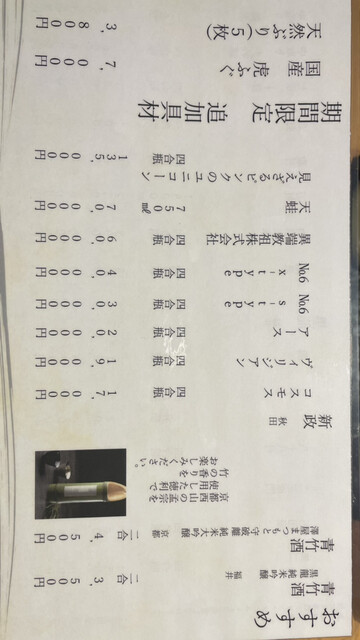 おすすめ
青竹酒 黒龍 純米吟醸 福井 二合 3,500円
青竹酒 澤屋まつもと守破離 純米大吟醸 京都 二合 4,500円
京都西山の孟宗を
使用した徳利で
竹の香りを
お楽しみください。
新政 秋田
コスモス 四合瓶 17,000円
ヴィリジアン 四合瓶 19,000円
アース 四合瓶 20,000円
No.6 s-type 四合瓶 30,000円
No.6 x-type 四合瓶 40,000円
異端教祖株式会社 四合瓶 60,000円
天蛙 750㎖ 70,000円
見えざるピンクのユニコーン 四合瓶 135,000円
期間限定 追加具材
国産 虎ふぐ 7,000円
天然ぶり(5枚) 3,800円